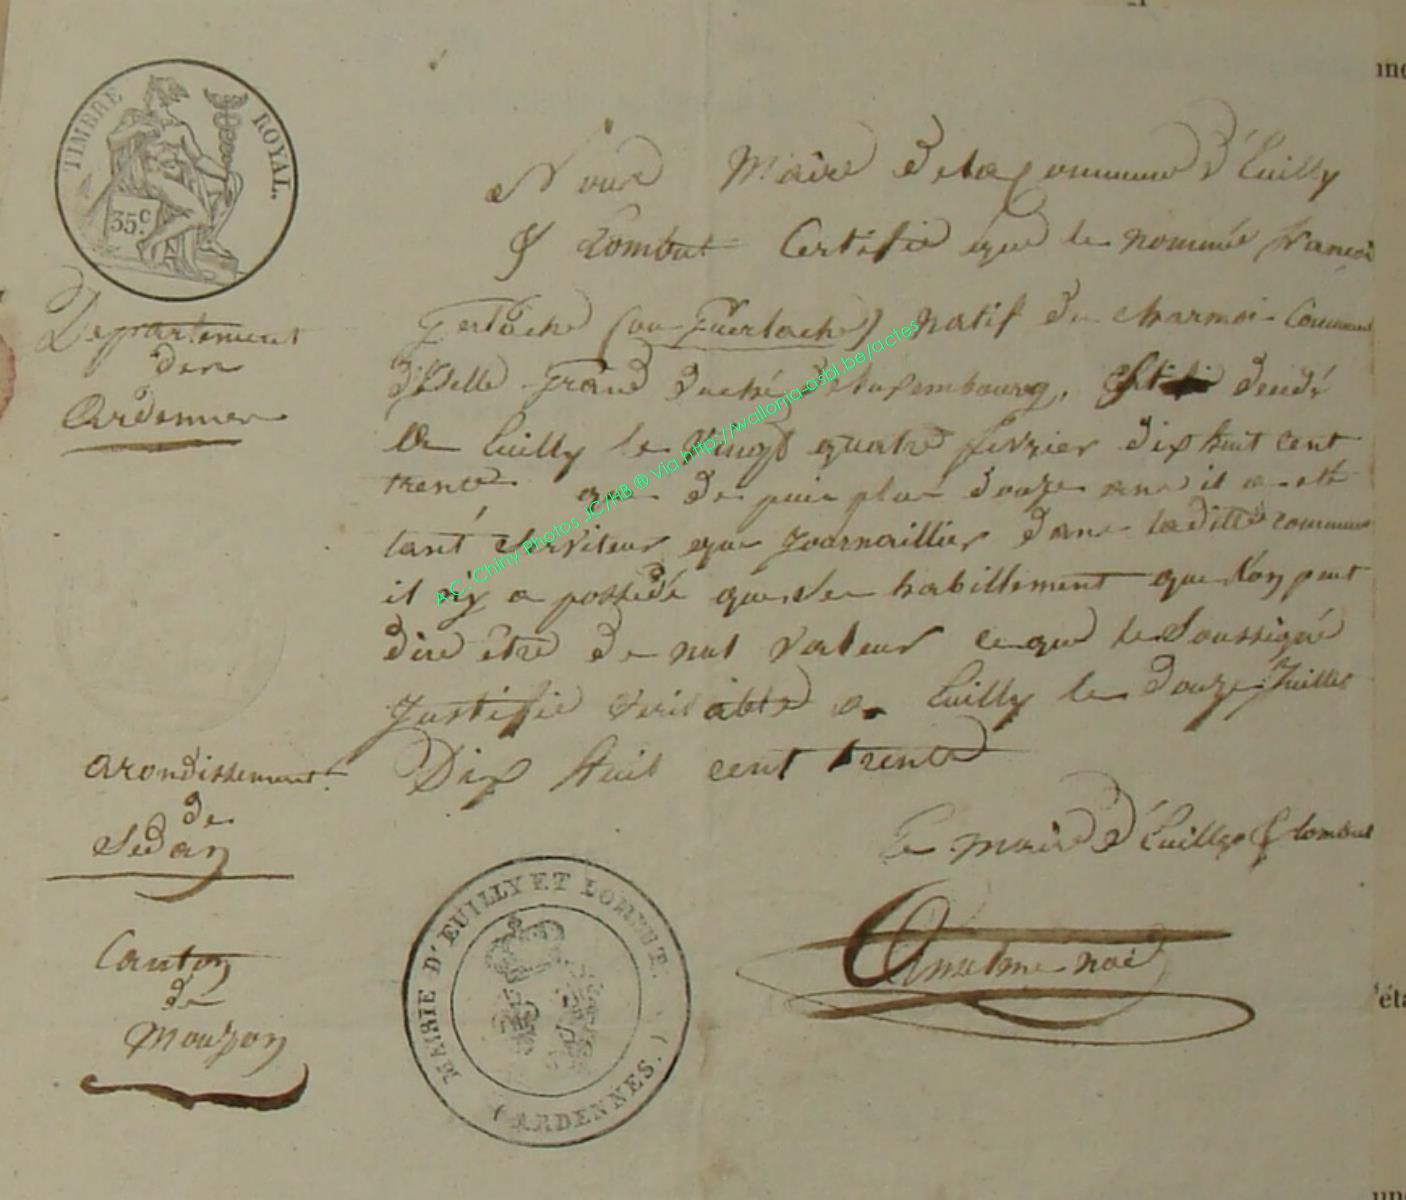 TIMBRE ROYAL.
35 c.
Departement
des
Ardennes
Nous Maire de la Commune d'Euilly
& Lombut Certifie que le nommée françois
Gerlache (ou Guerlache) natif de charmoi Commune
d'Izelle Grand duché de Luxembourg, deçédé
a Euilly le Vingt quatre fevrier dix huit cent
trente que de puis plus douze ans il a été
tant serviteur que Journaillier dans la ditte commune
il n'y a possédé que ses habillement que l'on peut
dire être de nul valeur ce que le Soussigné
Justifie veritable a Euilly le douze Juillet
Dix huit cent trente
arondissement
de
Sedan
Le maire d'Euilly & lombut
Anselme noé
Canton
de
Mouzon
MAIRIE D'EUILLY ET LOMBUT.
(ARDENNES.)
A.C. Chiny Photos JC/HB ® Via http://wallonia-asbl.be/actes